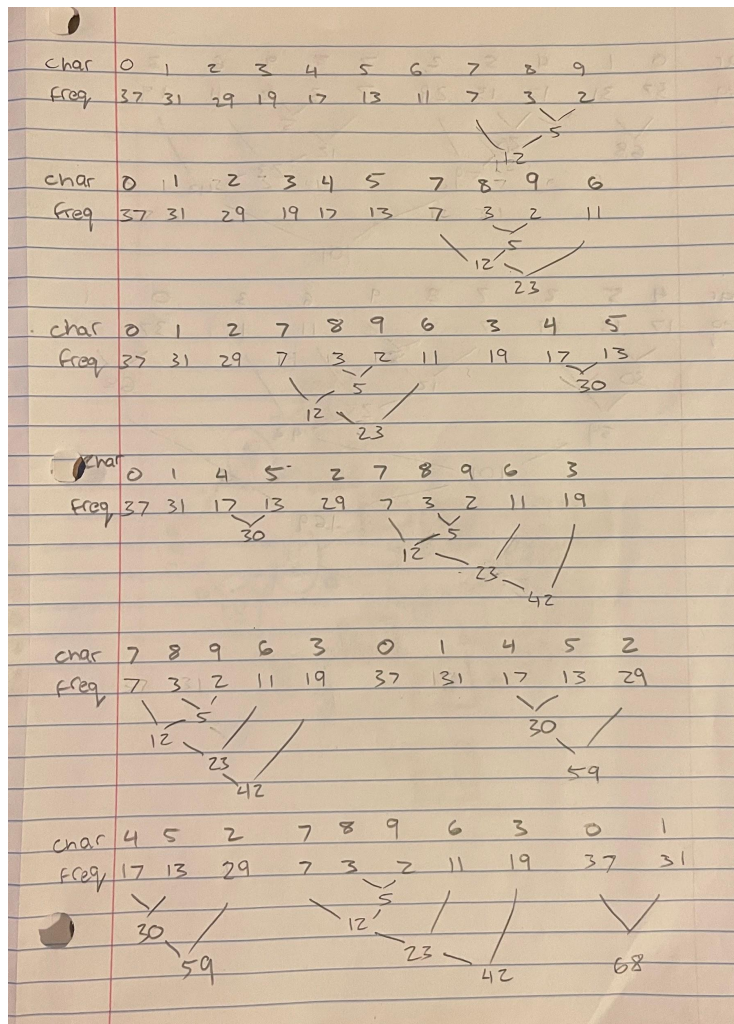 char 0 1 2 3 4 5 6 7 8 9
freq 37 31 29 19 17 13 11 7 3 2
5
12
char 0 1 2 3 4 5 7 8 9 6
freq 37 31 29 19 17 13 7 3 2 11
5
12
23
char 0 1 2 7 8 9 6 3 4 5
freq 37 31 29 7 3 2 11 19 17 13
5 30
12
23
char 0 1 4 5 2 7 8 9 6 3
freq 37 31 17 13 29 7 3 2 11 19
30 5
12
23
42
char 7 8 9 6 3 0 1 4 5 2
freq 7 3 2 11 19 37 31 17 13 29
5
12 30
23
42 59
char 4 5 2 7 8 9 6 3 0 1
freq 17 13 29 7 3 2 11 19 37 31
5
30 12
59 23 42 68